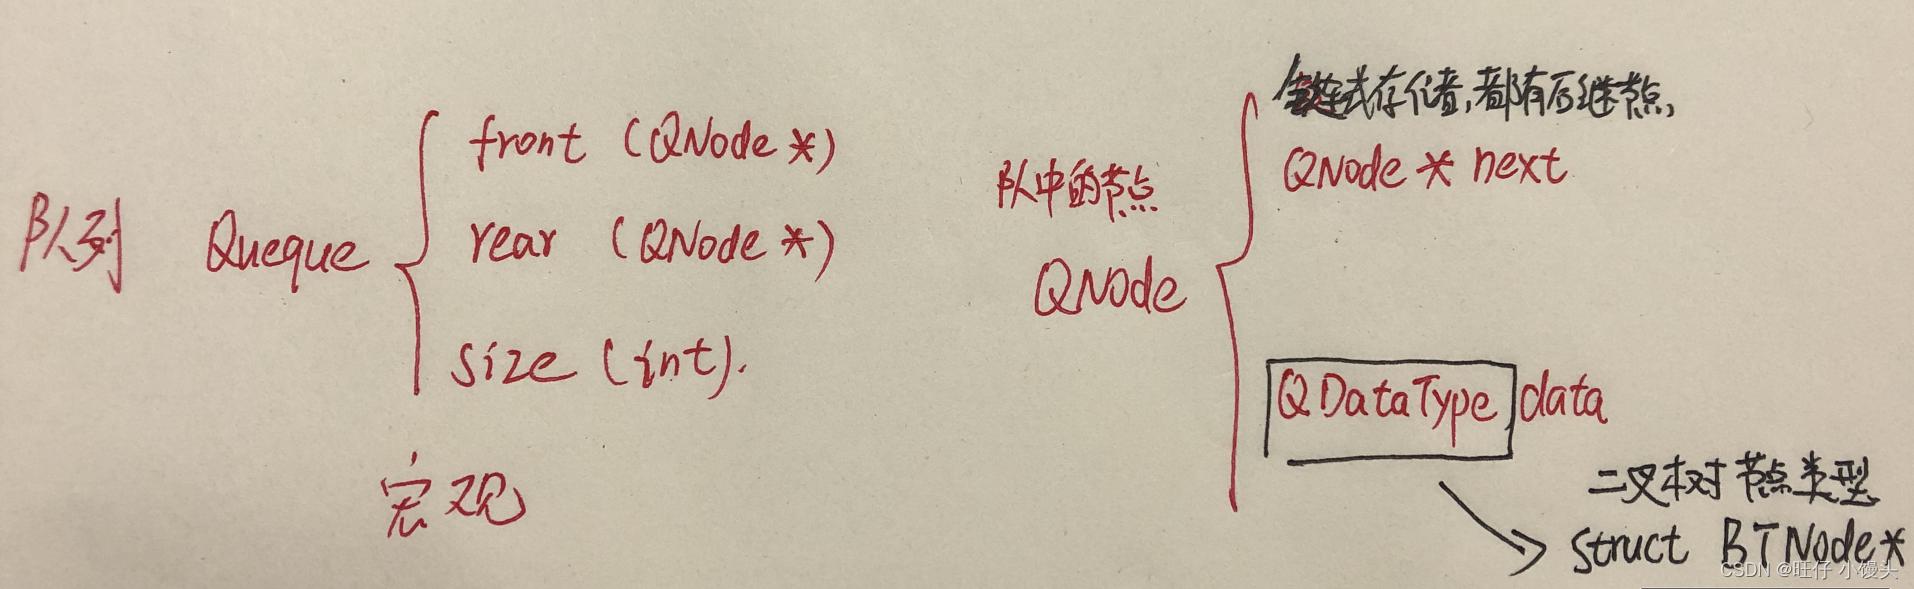 队列 Queque
front (QNode *)
rear (QNode *)
size (int).
宏观
队中的节点
QNode
链式存储着,都有后继节点,
QNode * next
QDataType data
二叉树节点类型
struct BTNode*
CSDN @旺仔 小馒头